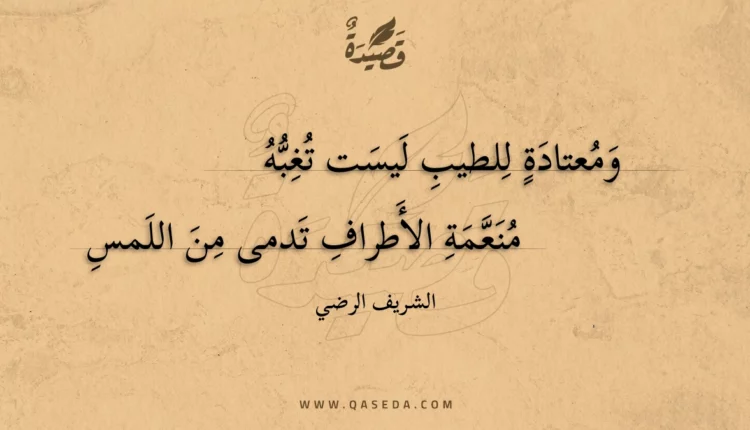 قَصِيدَةٌ
وَمُعتادَةٍ لِلطيبِ لَيسَت تُغِبُّهُ
مُنَعَّمَةِ الأَطرافِ تَدمى مِنَ اللَمسِ
الشريف الرضي
WWW.QASEDA.COM